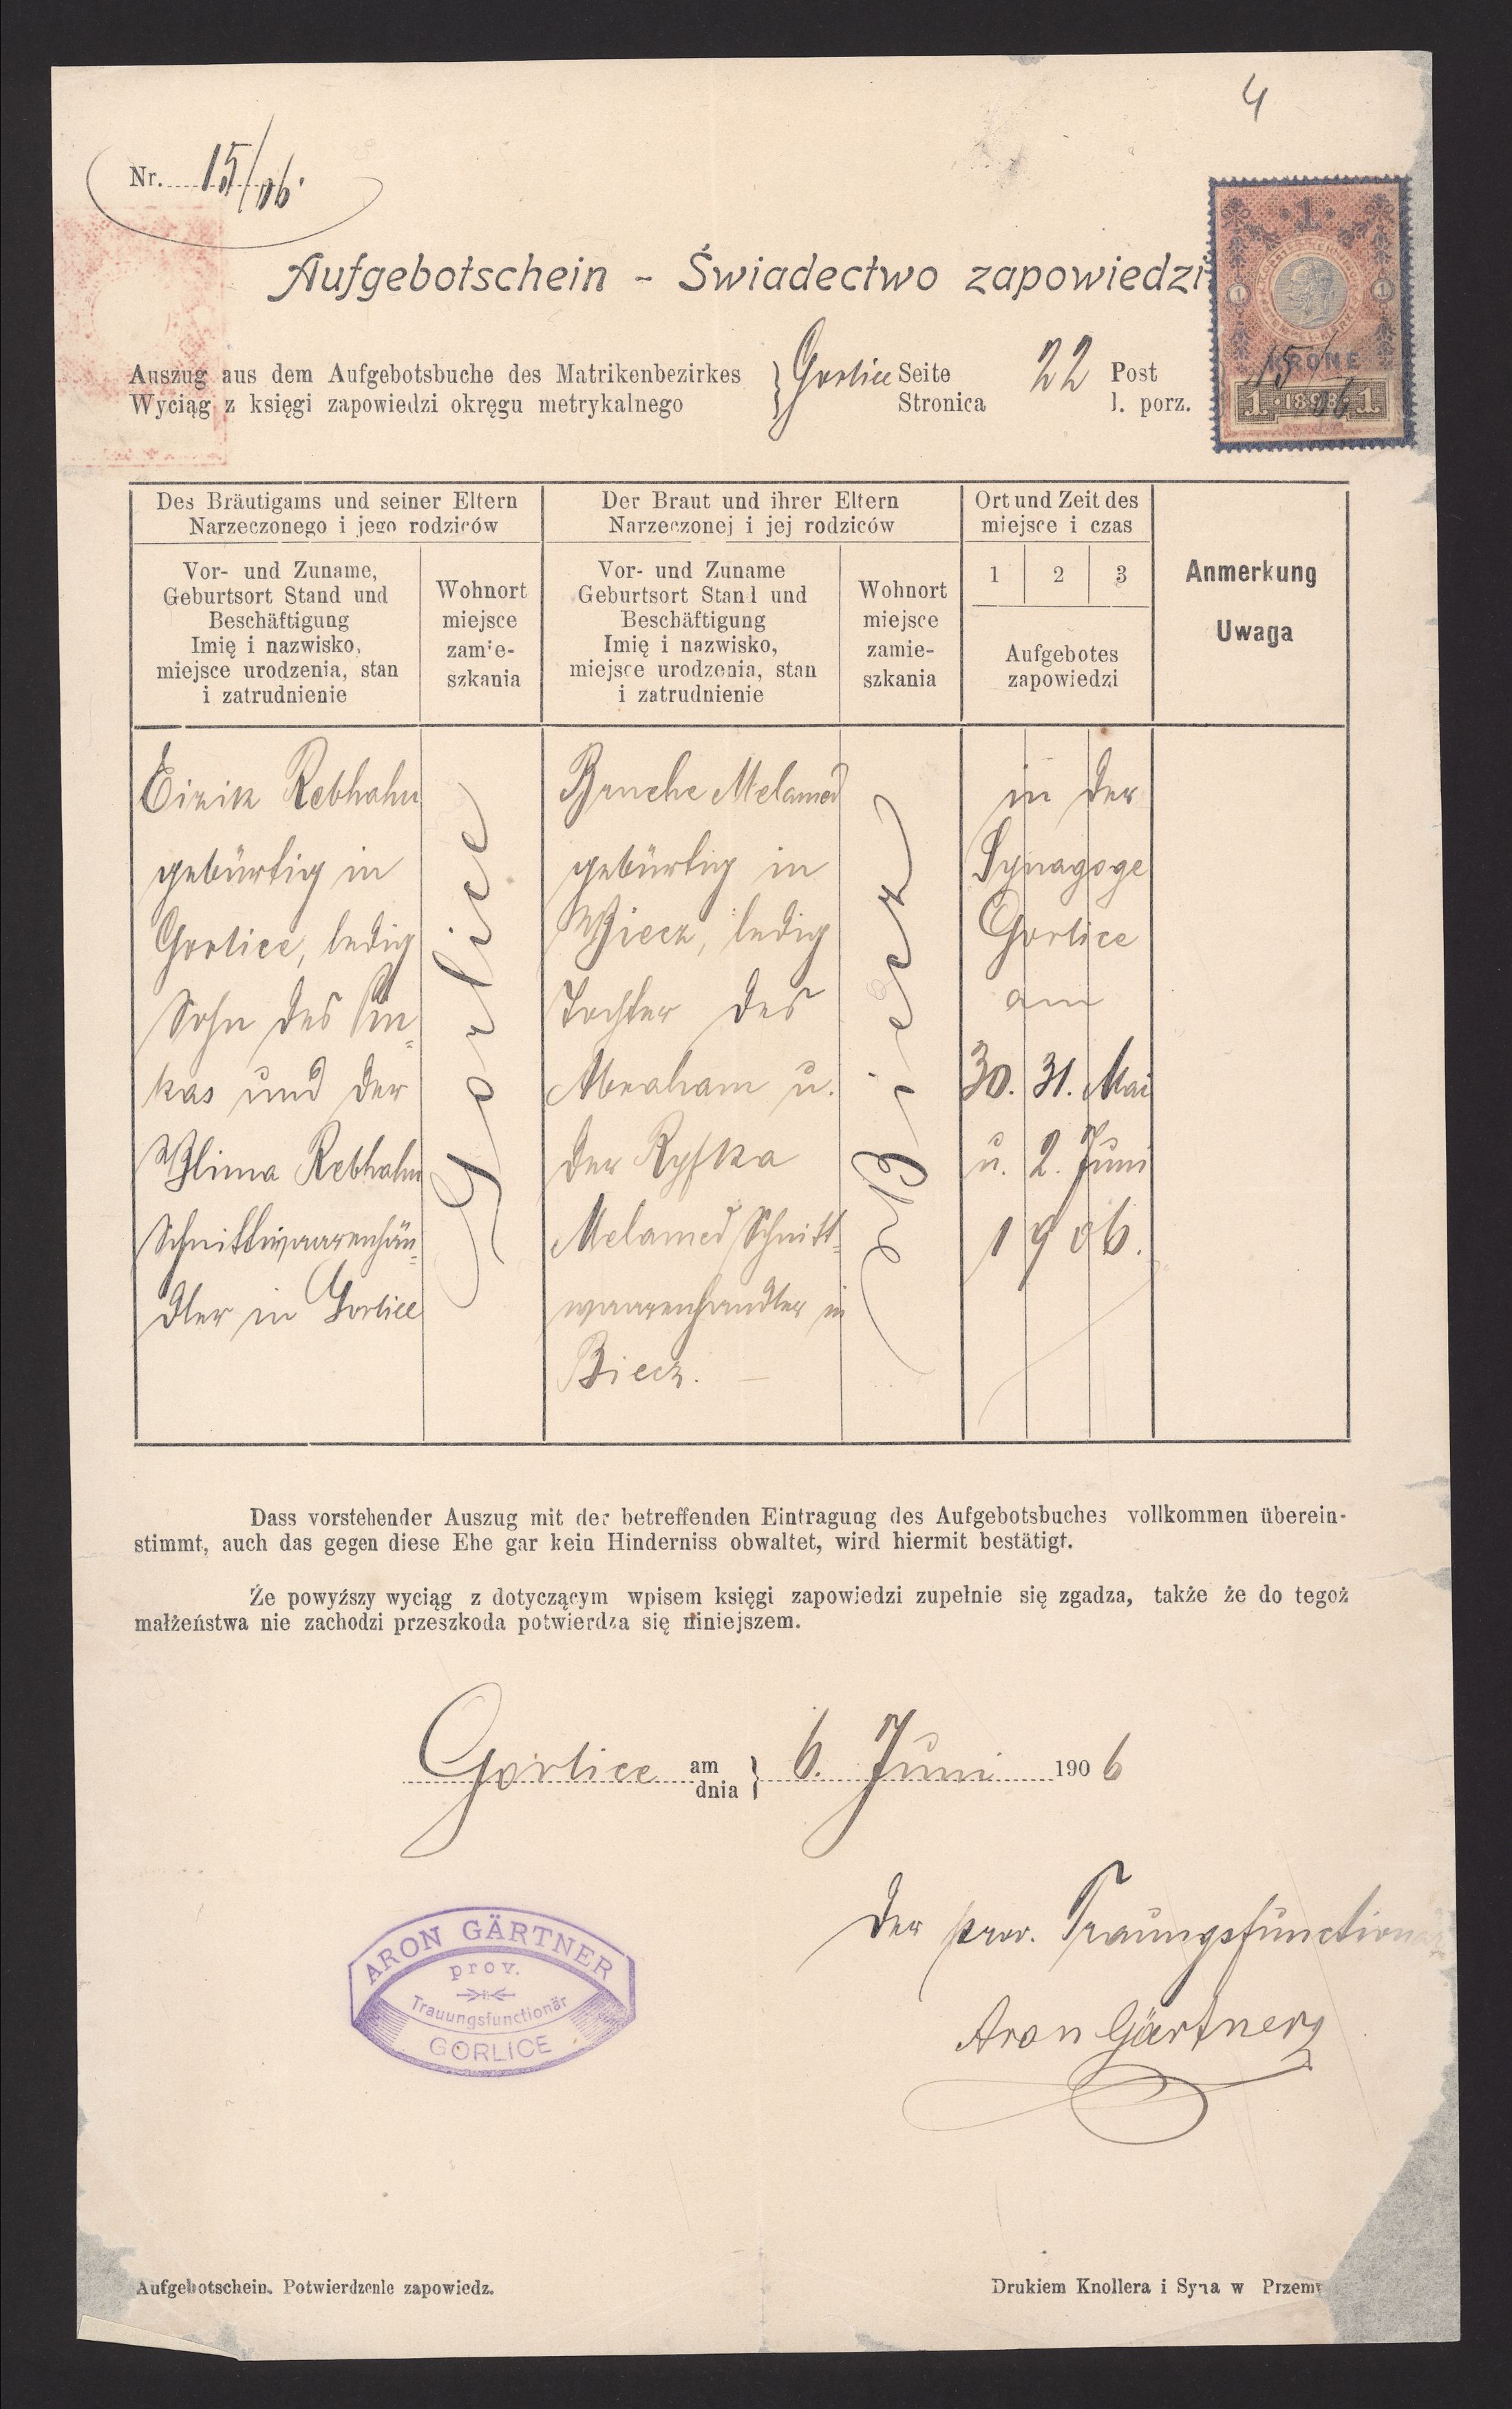 4
Nr. 15/06.
Aufgebotschein - Świadectwo zapowiedzi
Auszug aus dem Aufgebotsbuche des Matrikenbezirkes
Wyciąg z księgi zapowiedzi okręgu metrykalnego
Gorlice
Seite
Stronica
22
Post
l. porz.
1
KRONE
15/06
1 · 1898 · 1
Des Bräutigams und seiner Eltern
Narzeczonego i jego rodziców
Der Braut und ihrer Eltern
Narzeczonej i jej rodziców
Ort und Zeit des
miejsce i czas
Anmerkung
Uwaga
Vor- und Zuname,
Geburtsort Stand und
Beschäftigung
Imię i nazwisko,
miejsce urodzenia, stan
i zatrudnienie
Wohnort
miejsce
zamie-
szkania
Vor- und Zuname
Geburtsort Stand und
Beschäftigung
Imię i nazwisko,
miejsce urodzenia, stan
i zatrudnienie
Wohnort
miejsce
zamie-
szkania
1 2 3
Aufgebotes
zapowiedzi
Eizik Rebhahn
gebürtig in
Gorlice, ledig
Sohn des Pin-
kas und der
Blima Rebhahn
Schnittwaarenhän-
dler in Gorlice
Gorlice
Bruche Melamed
gebürtig in
Biecz, ledig
Tochter des
Abraham u.
der Ryfka
Melamed Schnitt-
waarenhandler in
Biecz.
Biecz
in der
Synagoge
Gorlice
am
30. 31. Mai
u. 2. Juni
1906.
Dass vorstehender Auszug mit der betreffenden Eintragung des Aufgebotsbuches vollkommen überein-
stimmt, auch das gegen diese Ehe gar kein Hinderniss obwaltet, wird hiermit bestätigt.
Że powyższy wyciąg z dotyczącym wpisem księgi zapowiedzi zupełnie się zgadza, także że do tegoż
małżeństwa nie zachodzi przeszkoda potwierdza się niniejszem.
Gorlice am
dnia } 6. Juni 1906
Der prov. Trauungsfunctionär
Aron Gärtner
ARON GÄRTNER
prov.
Trauungsfunctionär
GORLICE
Aufgebotschein. Potwierdzenie zapowiedz.
Drukiem Knollera i Syna w Przemy